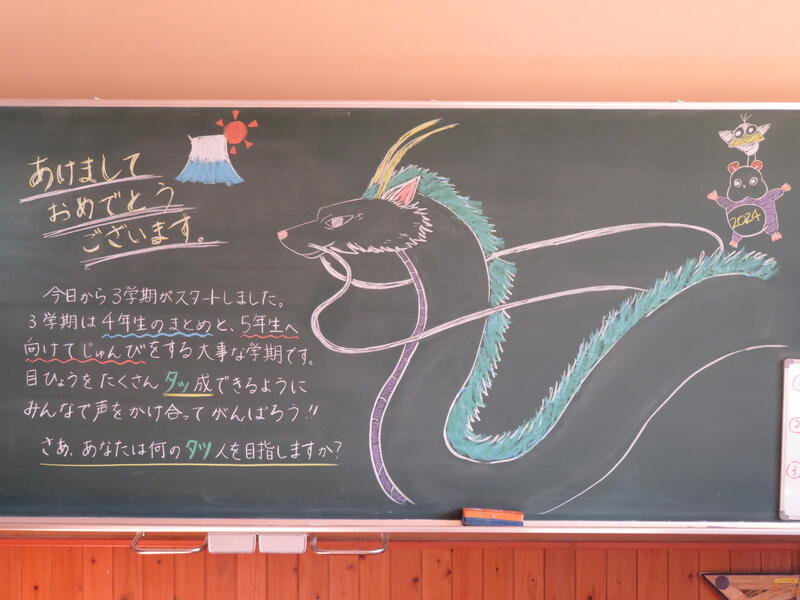 あけまして
おめでとう
ございます。
今日から3学期がスタートしました。
3学期は4年生のまとめと、5年生へ
向けてじゅんびをする大事な学期です。
目ひょうをたくさんタッ成できるように
みんなで声をかけ合ってがんばろう!!
さあ、あなたは何のタツ人を目指しますか?
2024
1
2
3